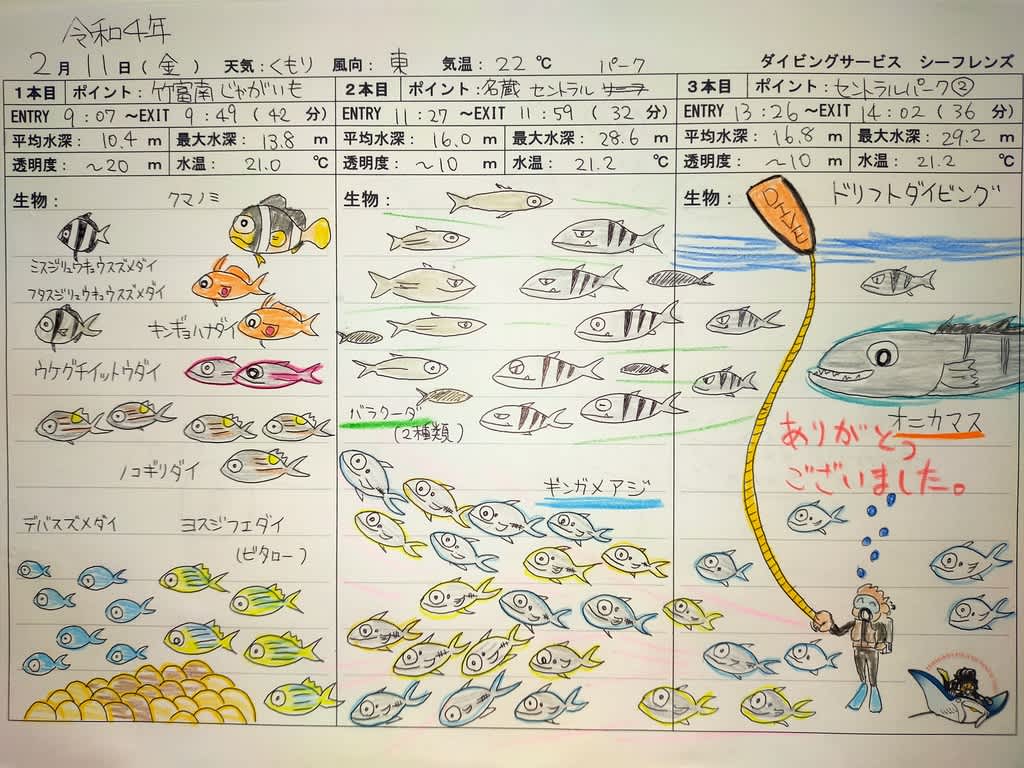 令和4年
2月11日(金) 天気:くもり 風向:東 気温:22℃ パーク ダイビングサービス シーフレンズ
1本目 ポイント:竹富南じゃがいも
ENTRY 9:07 ~EXIT 9:49 (42分)
平均水深:10.4 m 最大水深:13.8 m
透明度:~20 m 水温:21.0 ℃
生物: クマノミ
ミスジリュウキュウスズメダイ
フタスジリュウキュウスズメダイ
キンギョハナダイ
ウケグチイットウダイ
ノコギリダイ
デバスズメダイ ヨスジフエダイ
(ビタロー)
2本目 ポイント:名蔵 セントラル
ENTRY 11:27 ~EXIT 11:59 (32分)
平均水深:16.0 m 最大水深:28.6 m
透明度:~10 m 水温:21.2 ℃
生物:
バラクーダ
(2種類)
ギンガメアジ
3本目 ポイント:セントラルパーク②
ENTRY 13:26 ~EXIT 14:02 (36分)
平均水深:16.8 m 最大水深:29.2 m
透明度:~10 m 水温:21.2 ℃
生物: ドリフトダイビング
DIVE
オニカマス
ありがとう
ございました。